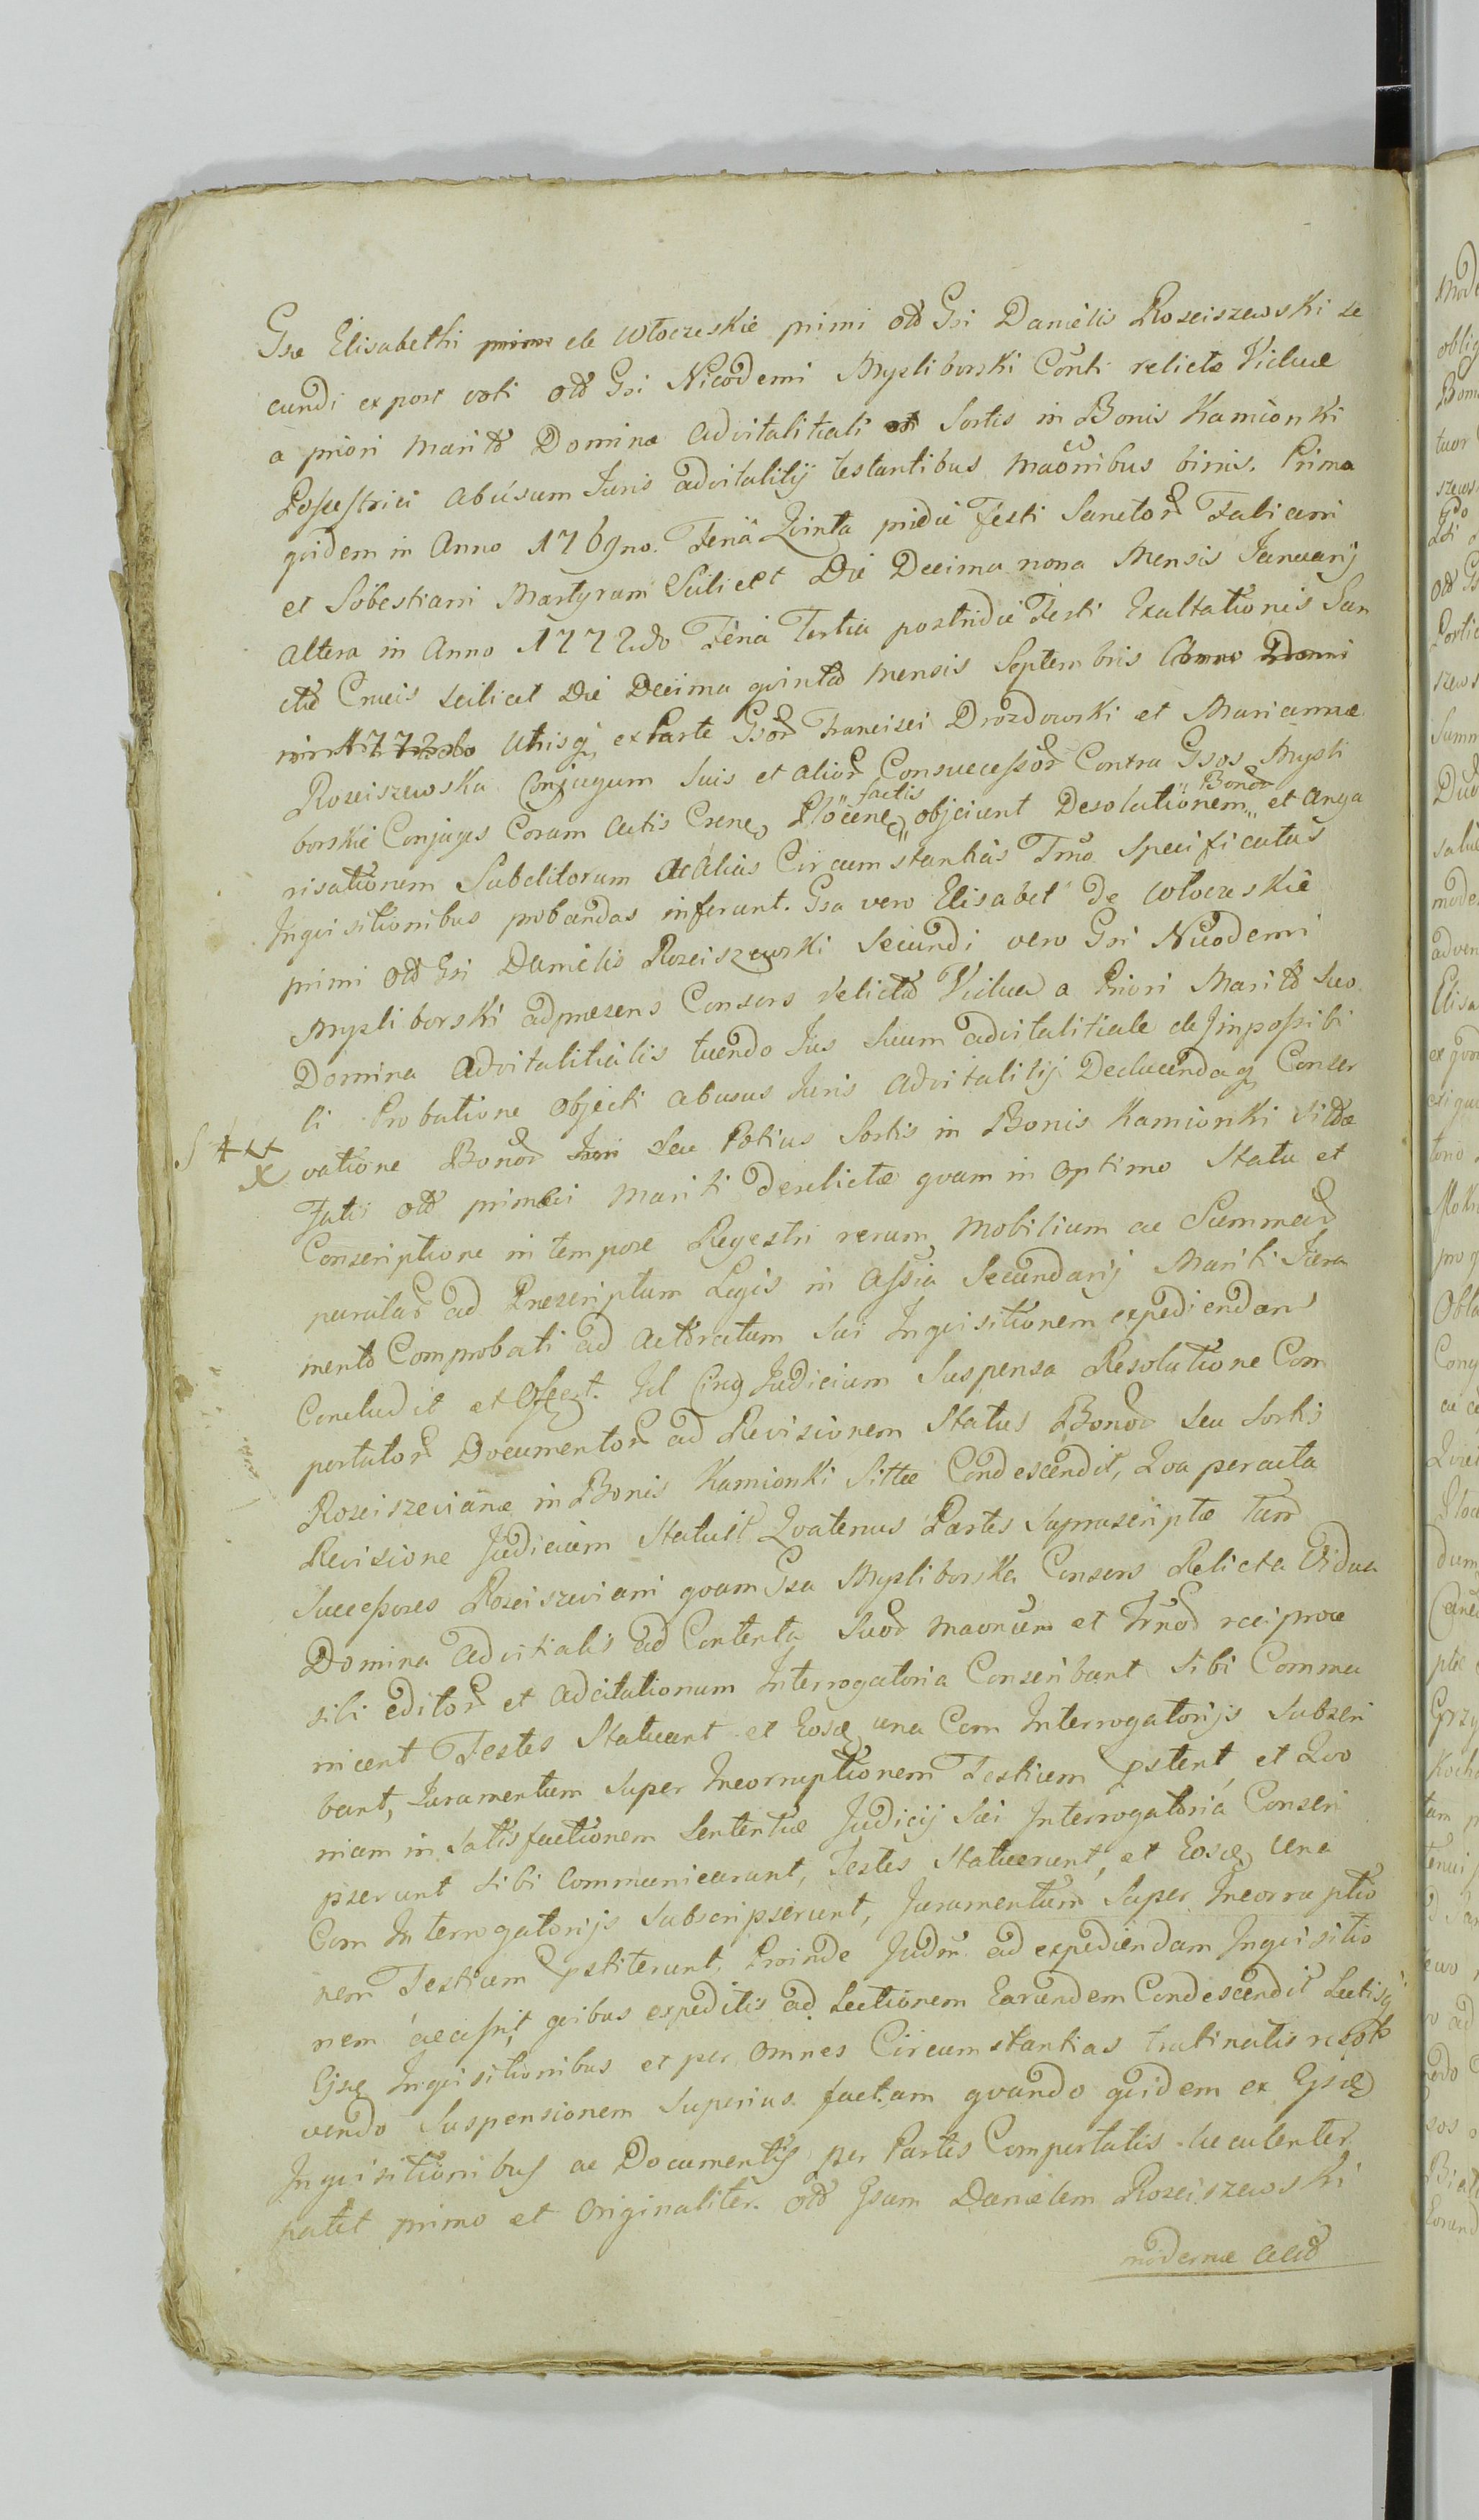 Gsæ Elisabethi primi de Włoczeskie primi olö Gsi Danielis Rosciszewski se
cundi expost voti olö Gsi Nicodemi Mysliborski Conti relictæ Viduæ
a priori Marito Dominæ Advitalitiali et Sortis in Bonis Kamionki
Possestrici abusum Juris advitalitij testantibus Maonibus binis. Prima
quidem in Anno 1769no. Feria Quinta pridie Festi Sanctor Fabiani
et Sebestiani Martyrum Scilicet Die Decima nona Mensis Januarij
altera in Anno 1772do Feria Tertia postridie Festi Exaltationis San
ctæ Crucis scilicet Die Decima quinta Mensis Septembris Anno Domi
ni 1772do Utrisq ex Parte Gsor Francisci Drozdowski et Mariannæ
Rosciszewska Conjugum Suis et alior Consuccessor Contra Gsos Mysli
borskie Conjuges Coram Actis Crene Plocene factis objciunt Desolationem Bonor et anga
risationem Subditorum ac Alias Circumstantias Tmo Specificatas
Inquisitionibus probandas inferunt. Gsa vero Elisabet De Włoczeskie
primi olö Gsi Danielis Rosciszewski Secundi vero Gsi Nicodemi
Mysliborski adpræsens Consors relicta Vidua a Priori Marito Suo
Domina Advitalitialis tuendo Jus Suum advitalitiale de Jmpossibi
li Probatione objecti abusus Juris Advitalitij Deducendaq Conser
vatione Bonor Juri Seu Potius Sortis in Bonis Kamionki Sittæ
Fatis olö primævi Mariti derelictæ quam in optimo Statu et
Conscriptione in tempore Regestri rerum Mobilium ac Summar
paratar ad Præscriptum Legis in Assia Secundarij Mariti Jura
mento Comprobati ad Actoratum Sui Inquisitionem expediendam
Concludit et Offert. Jd Circo Judicium Suspensa Resolutione Com
portator Documentor ad Revisionem Status Bonor Seu Sortis
Rosciszevianæ in Bonis Kamionki Sittæ Condescendit, Qva peracta
Revisione Judicium Statuit Qvatenus Partes Supra scriptæ tam
Successores Rosciszeviani quam Gsa Mysliborska Consors Relicta Vidua
Domina advitalis ad Contenta Suor Maonum et Trnor reciproce
sibi editor et adcitationum Interrogatoria Conscribant Sibi Commu
nicent Testes Statuant et Eosq una Cum Interrogatorijs Subscri
bant, Juramentum Super Incorruptionem Testium pstent, et Qvo
niam in Satisfactionem Sententiæ Judicij Sui Interrogatoria Conscri
pserunt sibi Communicarunt, Testes Statuerunt, et Eosq Una
Cum Interrogatorijs Subscripserunt, Juramentum Super Incorruptio
nem Testium pstiterunt, Proinde Judm ad expediendam Inquisitio
nem accessit, quibus expeditis ad Lectionem Earundem Condescendit Lectisq
Ejsq Inquisitionibus et per omnes Circumstantias trutinatis resol
vendo Suspensionem Superius factam quando quidem ex Ejsd
Inquisitionibus ac Documentis per Partes Comportatis luculenter
patet primo et Originaliter. olö Gsum Danielem Rosciszewski
modernæ